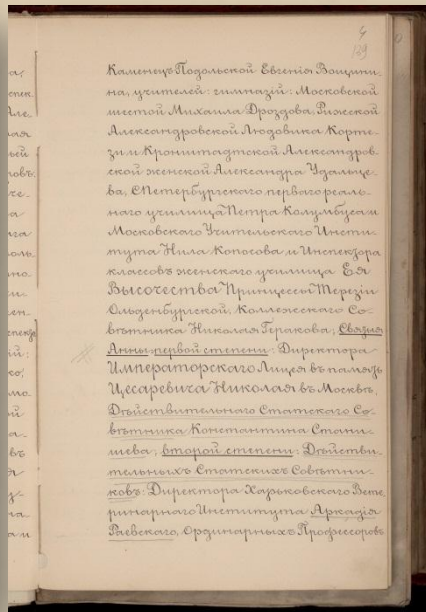 4
129
Каменецъ Подольской Евгенія Вощини-
на, учителей: гимназій: Московской
шестой Михаила Дроздова, Рижской
Александровской Людовика Корте-
зи и Кронштадтской Александров-
ской женской Александра Удальце-
ва, СПетербургскаго перваго реаль-
наго училища Петра Колумбуса и
Московскаго Учительскаго Инсти-
тута Нила Копосова и Инспектора
классовъ женскаго училища Ея
Высочества Принцессы Терезіи
Ольденбургской, Коллежскаго Со-
вѣтника Николая Геракова; Святыя
Анны первой степени: Директора
Императорскаго Лицея въ память
Цесаревича Николая въ Москвѣ,
Дѣйствительнаго Статскаго Со-
вѣтника Константина Стани-
шева; второй степени: Дѣйстви-
тельныхъ Статскихъ Совѣтни-
ковъ: Директора Харьковскаго Вете-
ринарнаго Института Аркадія
Раевскаго, Ординарныхъ Профессоровъ